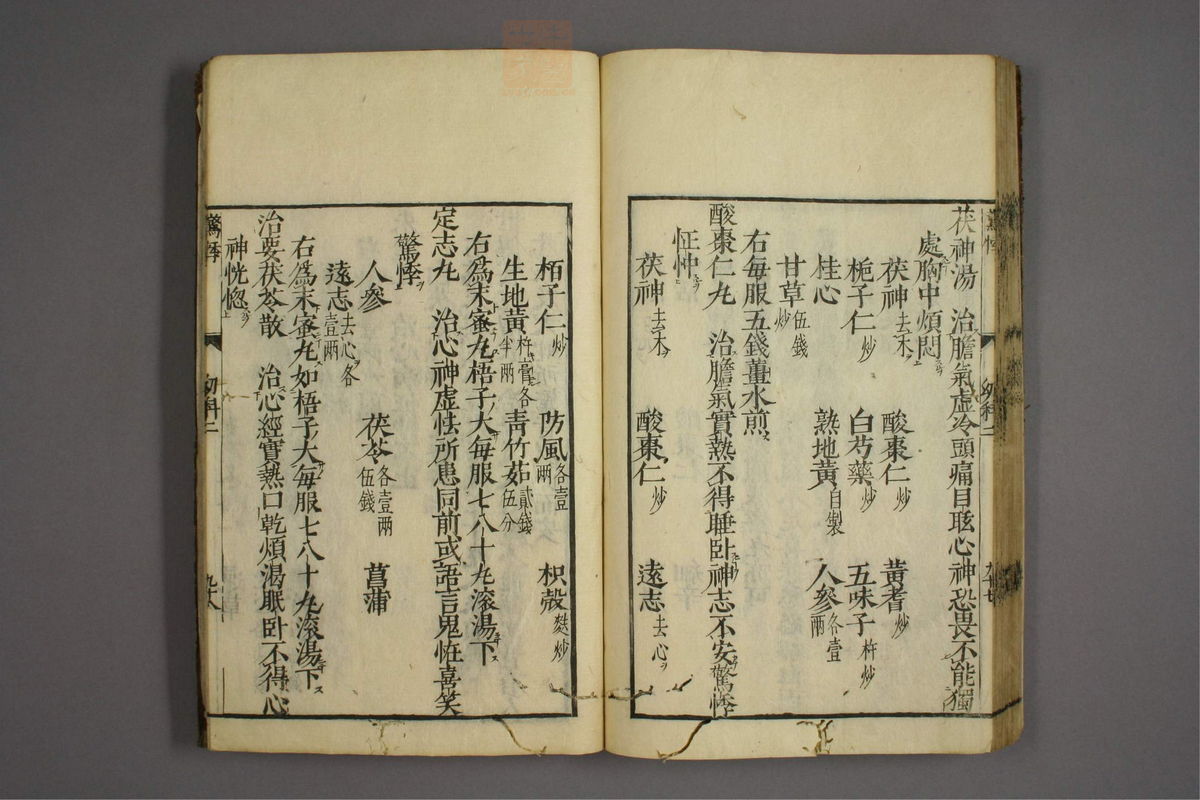 茯神湯　治膽氣虛冷頭痛目眩心神恐畏不能獨
處胸中煩悶
茯神去木　酸棗仁炒　黃耆炒
梔子仁炒　白芍藥炒　五味子杵炒
桂心　熟地黃自製　人參各壹兩
甘草伍錢炒
右每服五錢薑水煎
酸棗仁丸　治膽氣實熱不得睡卧神志不安驚悸
怔忡
茯神去木　酸棗仁炒　遠志去心
栢子仁炒　防風各壹兩　枳殼麩炒
生地黃杵膏各半兩　靑竹茹貳錢伍分
右爲末蜜丸梧子大每服七八十丸滾湯下
定志丸　治心神虛怯所患同前或語言鬼恠喜笑
驚悸
人參　茯苓各壹兩伍錢　菖蒲
遠志去心各壹兩
右爲末蜜丸如梧子大每服七八十丸滾湯下
治要茯苓散　治心經實熱口乾煩渴眠卧不得心
神恍惚
驚悸　幼科二　九十八